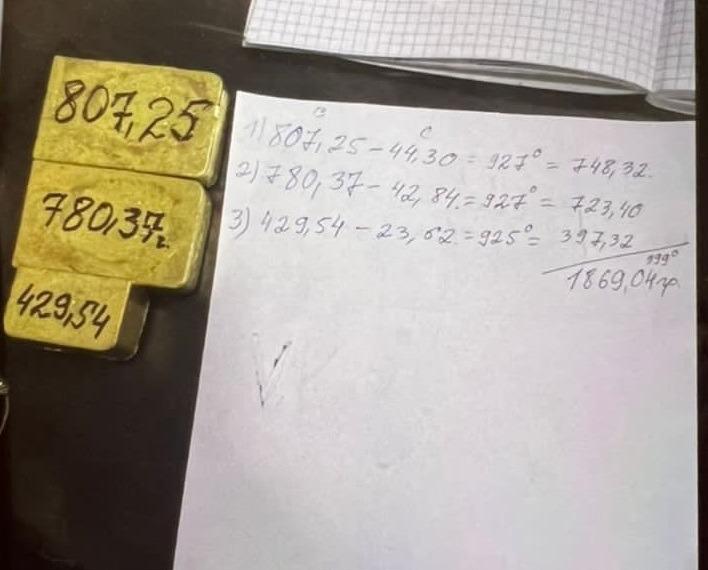 807,25
780,37г.
429,54
в с
1) 807,25 - 44,30 = 927° = 748,32.
2) 780,37 - 42,84. = 927° = 723,40
3) 429,54 - 23,62. = 925° = 397,32
999°
1869,04гр.